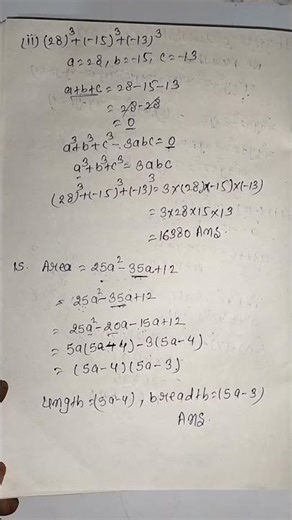 (ii) (28)³+(-15)³+(-13)³
a=28, b=-15, c=-13
a+b+c = 28-15-13
= 28-28
= 0
a³+b³+c³-3abc=0
a³+b³+c³=3abc
(28)³+(-15)³+(-13)³=3×(28)×(-15)×(-13)
= 3×28×15×13
= 16380 Ans.
15. Area = 25a²-35a+12
= 25a²-35a+12
= 25a²-20a-15a+12
= 5a(5a-4)-3(5a-4)
= (5a-4)(5a-3)
length=(5a-4), breadth=(5a-3)
Ans.